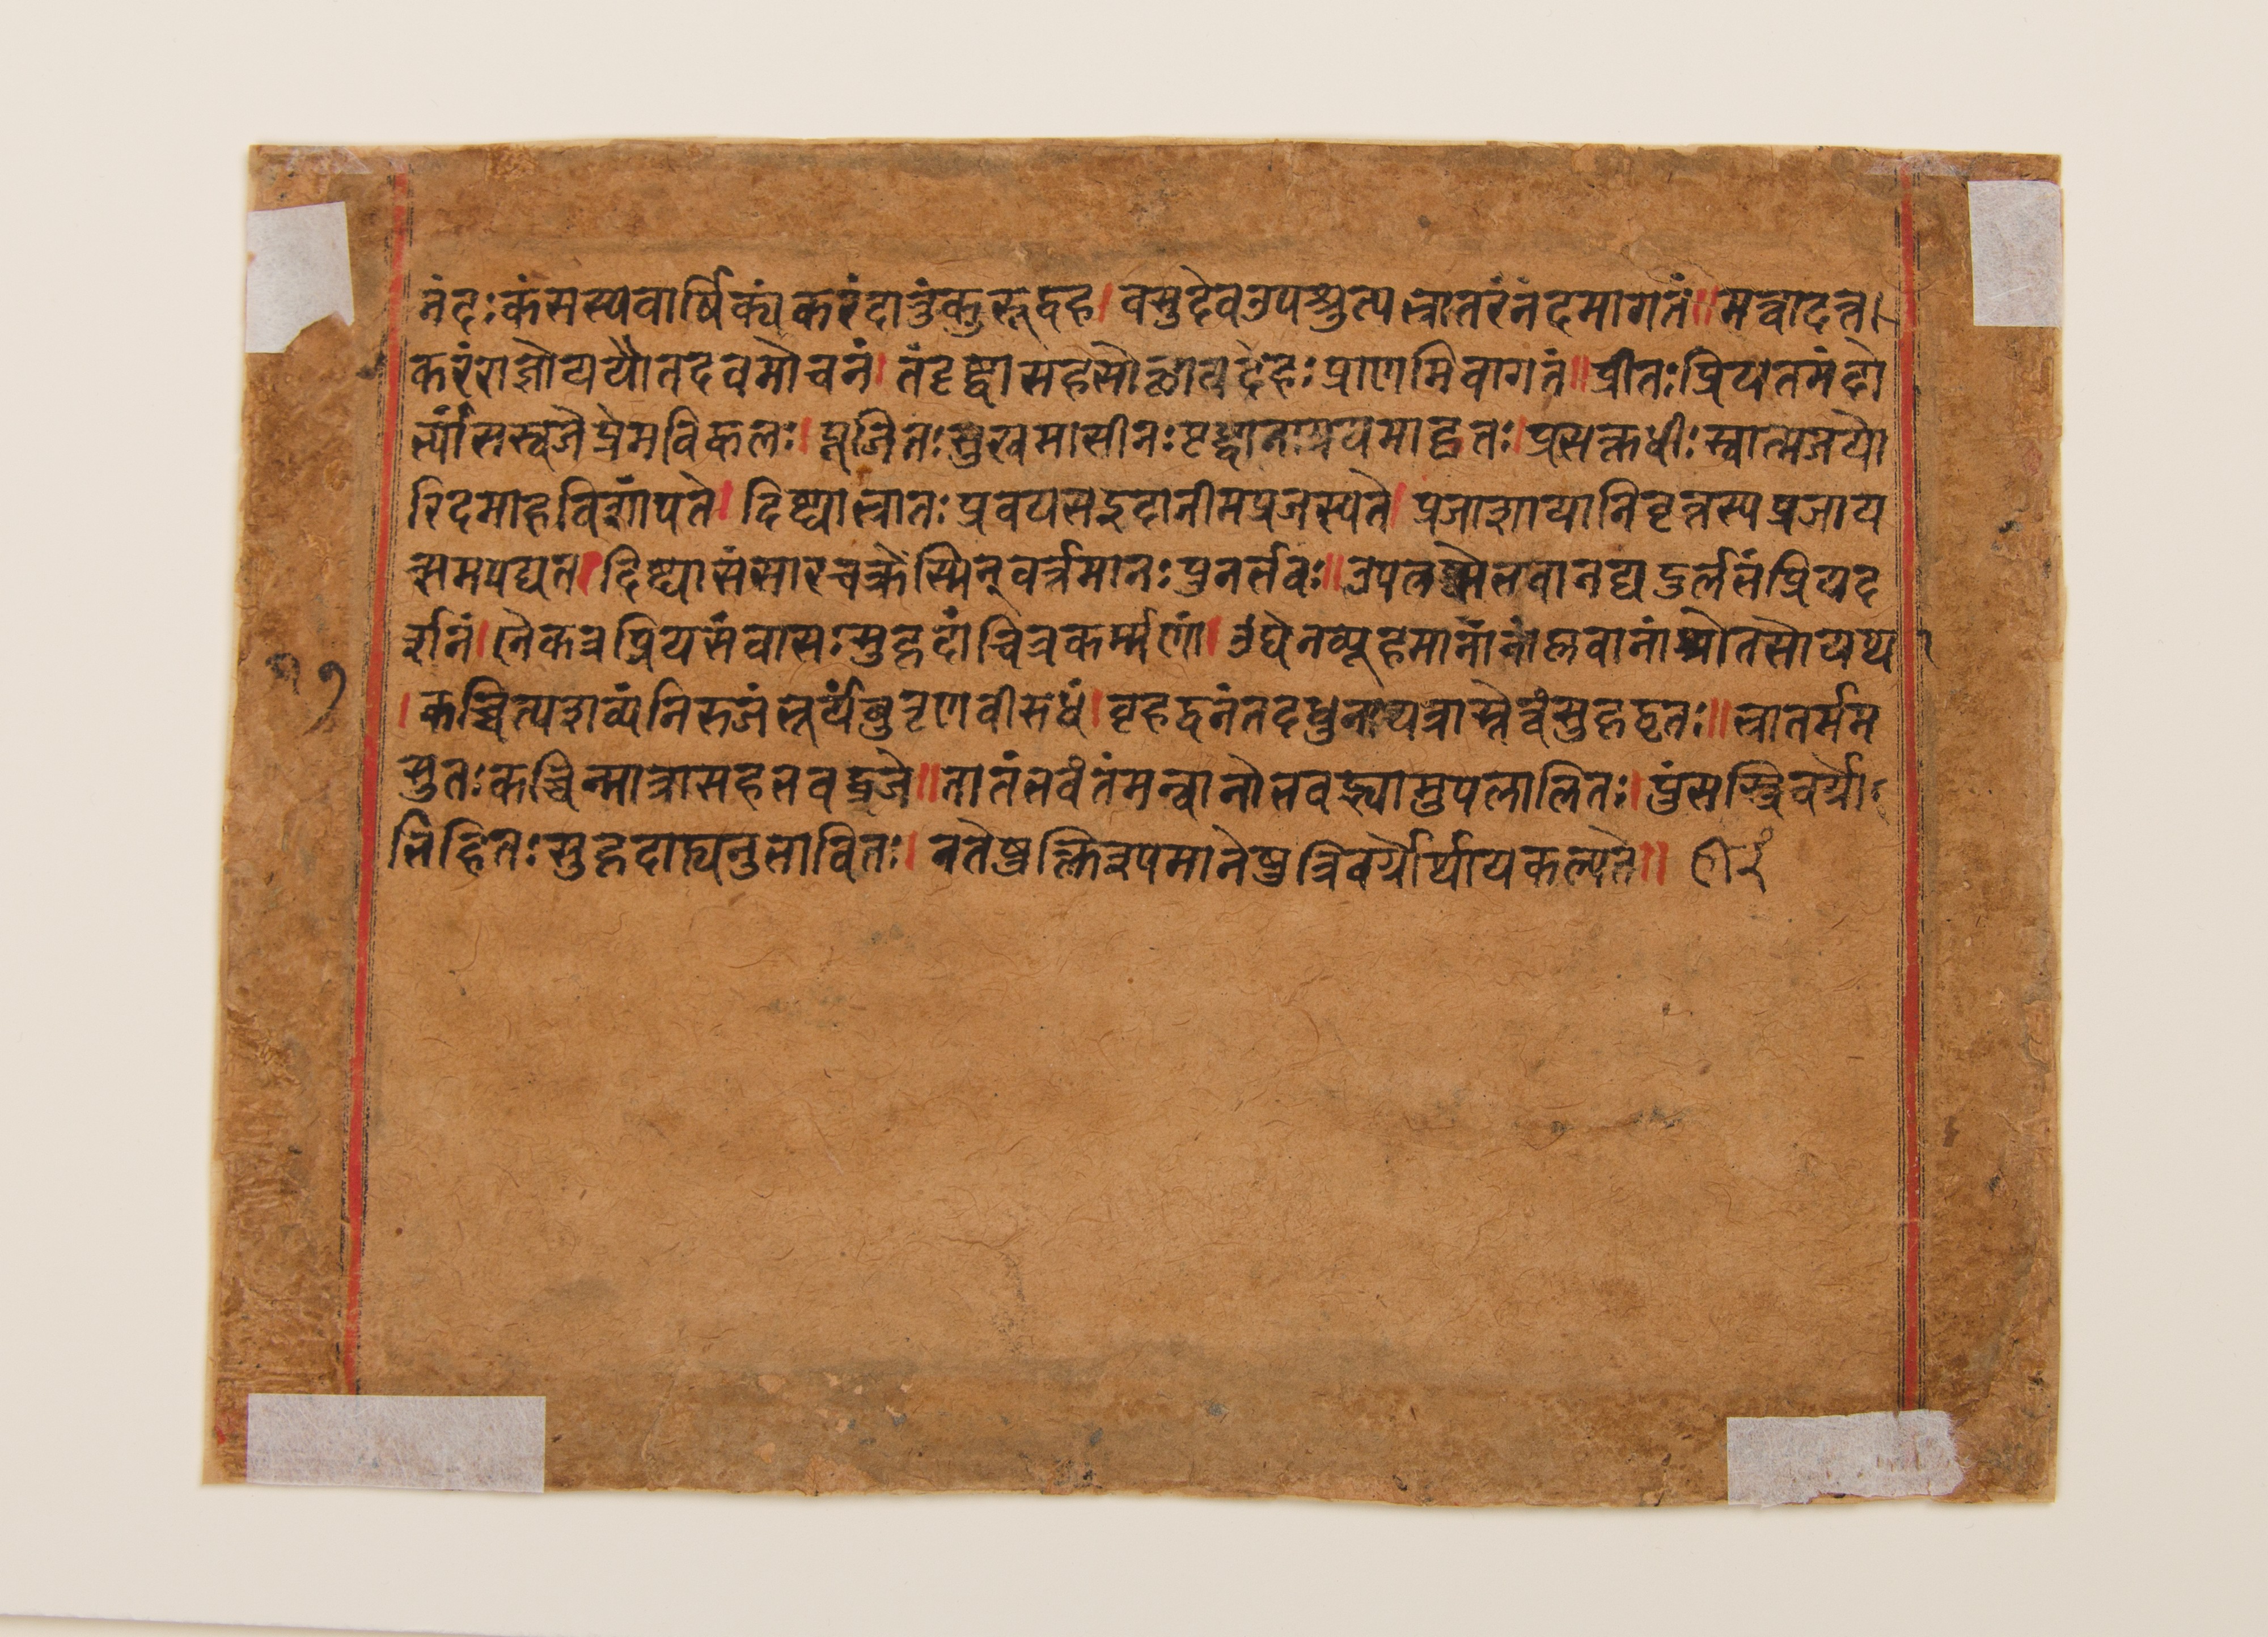 नंदःकंसस्यवार्षिक्यंकरंदातुंकुरूद्वह।वसुदेवउपश्रुत्यभ्रातरंनंदमागतं॥मत्वादत्त।
करंराज्ञोययौतदवमोचनं।तंदृष्ट्वासहसोत्थायदेहःप्राणमिवागतं॥प्रीतःप्रियतमंदो
र्भ्यांसस्वजेप्रेमविकलः।पूजितःसुखमासीनःपृष्ट्वानामयमादृतः।प्रसक्तधीःस्वात्मजयो
रिदमाहविशांपते।दिष्ट्याभ्रातःप्रवयसइदानीमप्रजस्यते।प्रजाशायानिवृत्तस्यप्रजाय
त्समपद्यत।दिष्ट्यासंसारचक्रेस्मिन्वर्त्तमानःपुनर्भवः॥उपलब्धोभवानद्यदुर्लभंप्रियद
र्शनं।नैकत्रप्रियसंवासःसुहृदांचित्रकर्म्मणां।उघेनव्यूहमानांनांप्लवानांश्रोतसोयथा
।कच्चित्पशव्यंनिरुजंभूर्यंबुतृणवीरुधं।वृहद्वनंतदधुनायत्रास्तेत्वंसुहृद्वृतः॥भ्रातर्मम
सुतःकच्चिन्मात्रासहभवद्व्रजे॥तातंभवंतंमन्वानोभवद्भ्यामुपलालितः।पुंसस्त्रिवर्गो
भिहितःसुहृदोह्यनुभावितः।नतेषुक्लिश्यमानेषुत्रिवर्गोर्थायकल्पते॥